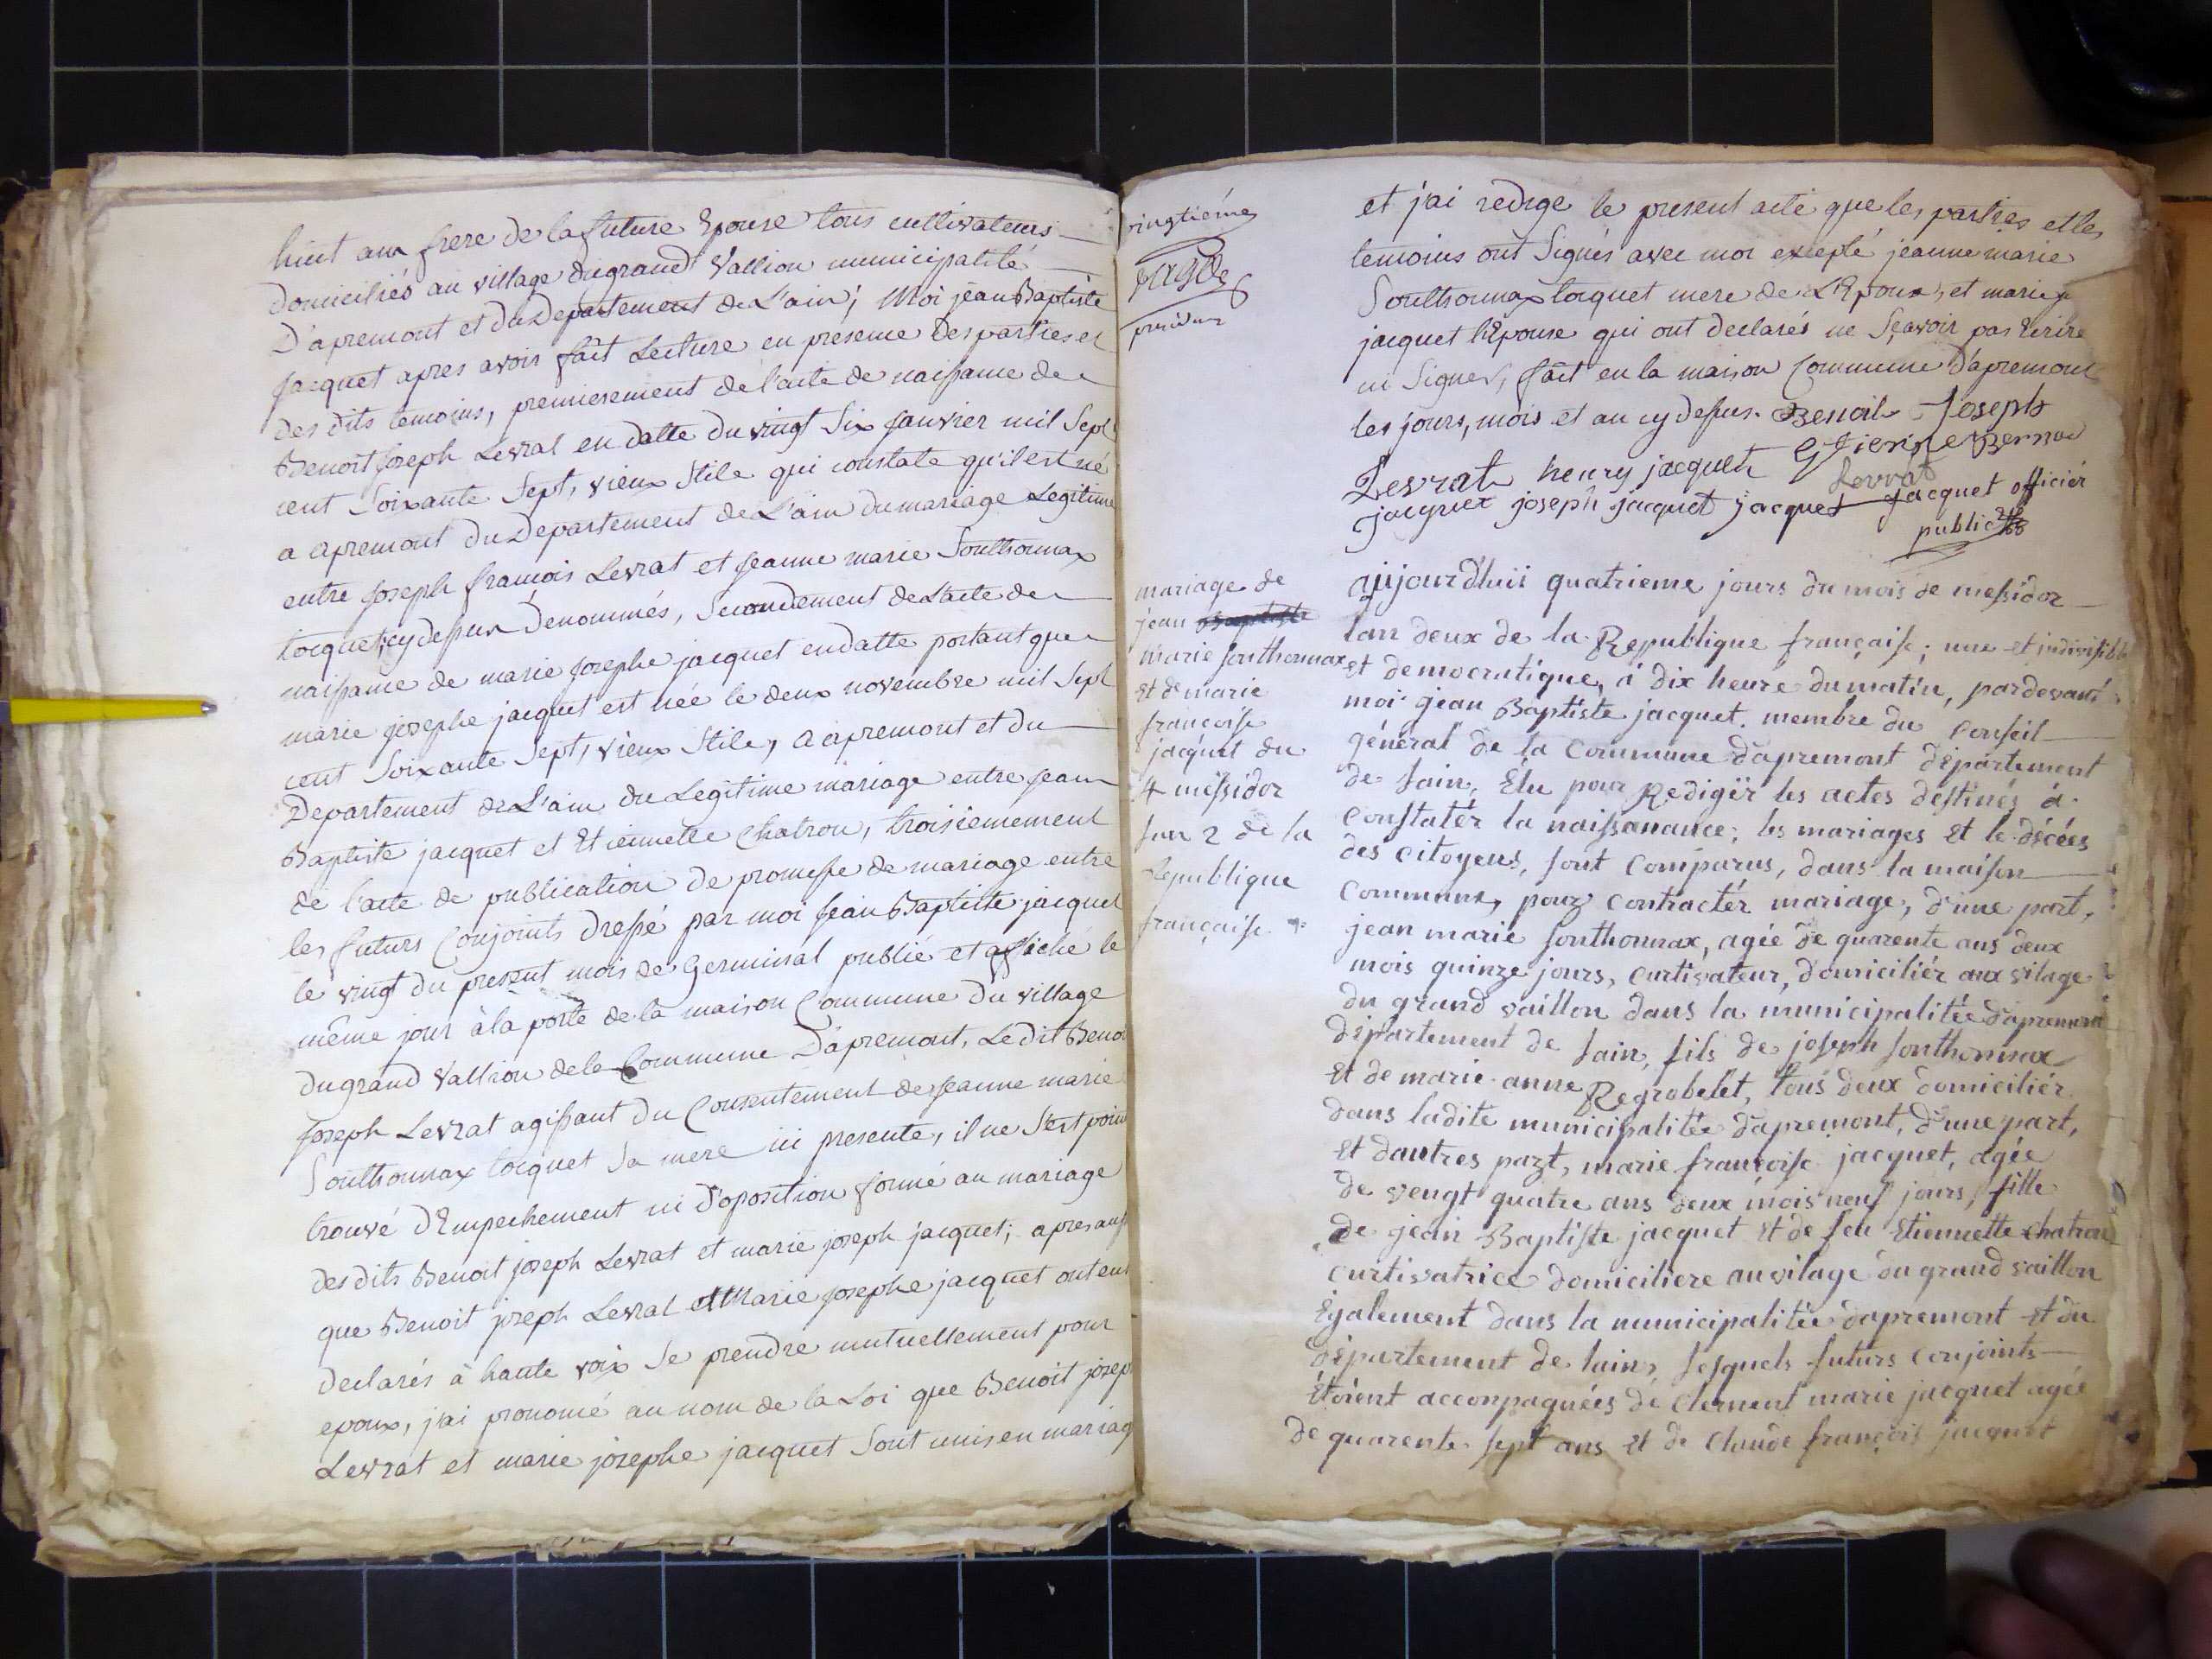 huit ans frere de la future Epouse tous cultivateurs
domiciliés au village du grand Vallion municipalité
D'apremont et du Departement de L'ain; Moi jean Baptiste
Jacquet apres avoir fait Lecture en presence des parties et
des dits temoins, premierement de l'acte de naissance de
Benoit Joseph Levrat en datte du vingt Six Janvier mil Sept
cent Soixante Sept, vieux Stile qui constate qu'il est né
a apremont du Departement de L'ain du mariage Legitime
entre Joseph françois Levrat et Jeanne marie Sonthonnax
tocquet, cy dessus denommés, Secondement de L'acte de
naissance de marie Josephe jacquet en datte portant que
marie josephe jacquet est née le deux novembre mil Sept
cent Soixante Sept, vieux Stile, a apremont et du
Departement de L'ain du Legitime mariage entre Jean
Baptiste jacquet et Etiennette Chatron, troisiemement
de l'acte de publication de promesse de mariage entre
les futurs Conjoints Dressé par moi Jean Baptiste jacquet
le vingt du present mois de Germinal publié et affiché le
même jour à la porte de la maison Commune du village
du grand Vallion de la Commune D'apremont, Le dit Benoit
Joseph Levrat agissant du Consentement de Jeanne marie
Sonthonnax tocquet Sa mere ici presente, il ne S'est point
trouvé d'Empechement ni d'oposition formé au mariage
des dits Benoit joseph Levrat et marie joseph jacquet; apres aussi
que Benoit joseph Levrat et Marie Josephe jacquet ont eut
declarés à haute voix Se prendre mutuellement pour
epoux, j'ai prononcé au nom de la Loi que Benoit joseph
Levrat et marie josephe jacquet Sont unis en mariage
vingtiéme
page
et j'ai redige le present acte que les parties et les
temoins ont Signés avec moi excepté jeanne marie
Sonthonnax tocquet mere de L'Epoux, et marie j
jacquet l'Epouse qui ont declarés ne Sçavoir pas Ecrire
ni Signer, fait en la maison Commune d'apremont
les jours, mois et an cy dessus. Benoit Joseph
Levrat henry jacquet Etienne Bernard
Levrat
jacquet joseph jacquet jacquet Jacquet officier
public
mariage de
jean Baptiste
marie sonthonnax
et de marie
françoise
jacquet du
4 messidor
lan 2 de la
Republique
française
aujourd'huii quatrieme jours du mois de messidor
lan deux de la Republique française; une et indivisible
et democratique, á dix heure du matin, pardevant
moi jean Baptiste jacquet membre du conseil
général de la commune dapremont département
de lain, Élu pour Redigér les actes destinés á
constatér la naissanance; les mariages et le décées
des citoyens, sont comparus, dans la maison
commune, pour contractér mariage, d'une part,
jean marie sonthonnax, agée de quarente ans deux
mois quinze jours, curtivateur, domiciliér aux vilage
du grand vaillon dans la municipalitée dapremont
département de lain, fils de joseph sonthonnax
et de marie anne Regrobelet, tous deux domiciliér
dans ladite municipalitée dapremont, d'une part,
et dautres part, marie françoise jacquet, agée
de vengt quatre ans deux mois neuf jours, fille
de jean Baptiste jacquet et de feu Etiennette chatron
curtivatrice domiciliere au vilage du grand vaillon
Également dans la municipalitée dapremont et du
département de lain, lesquels futurs conjoints
Étoient acconpagnées de clement marie jacquet agée
de quarente sept ans et de claude françois jacquet